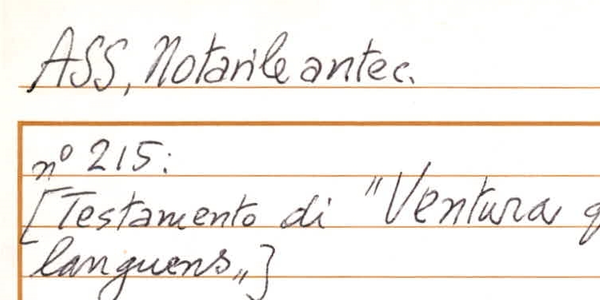 ASS, Notarile antec.
nº 215:
[Testamento di "Ventura
languens"]